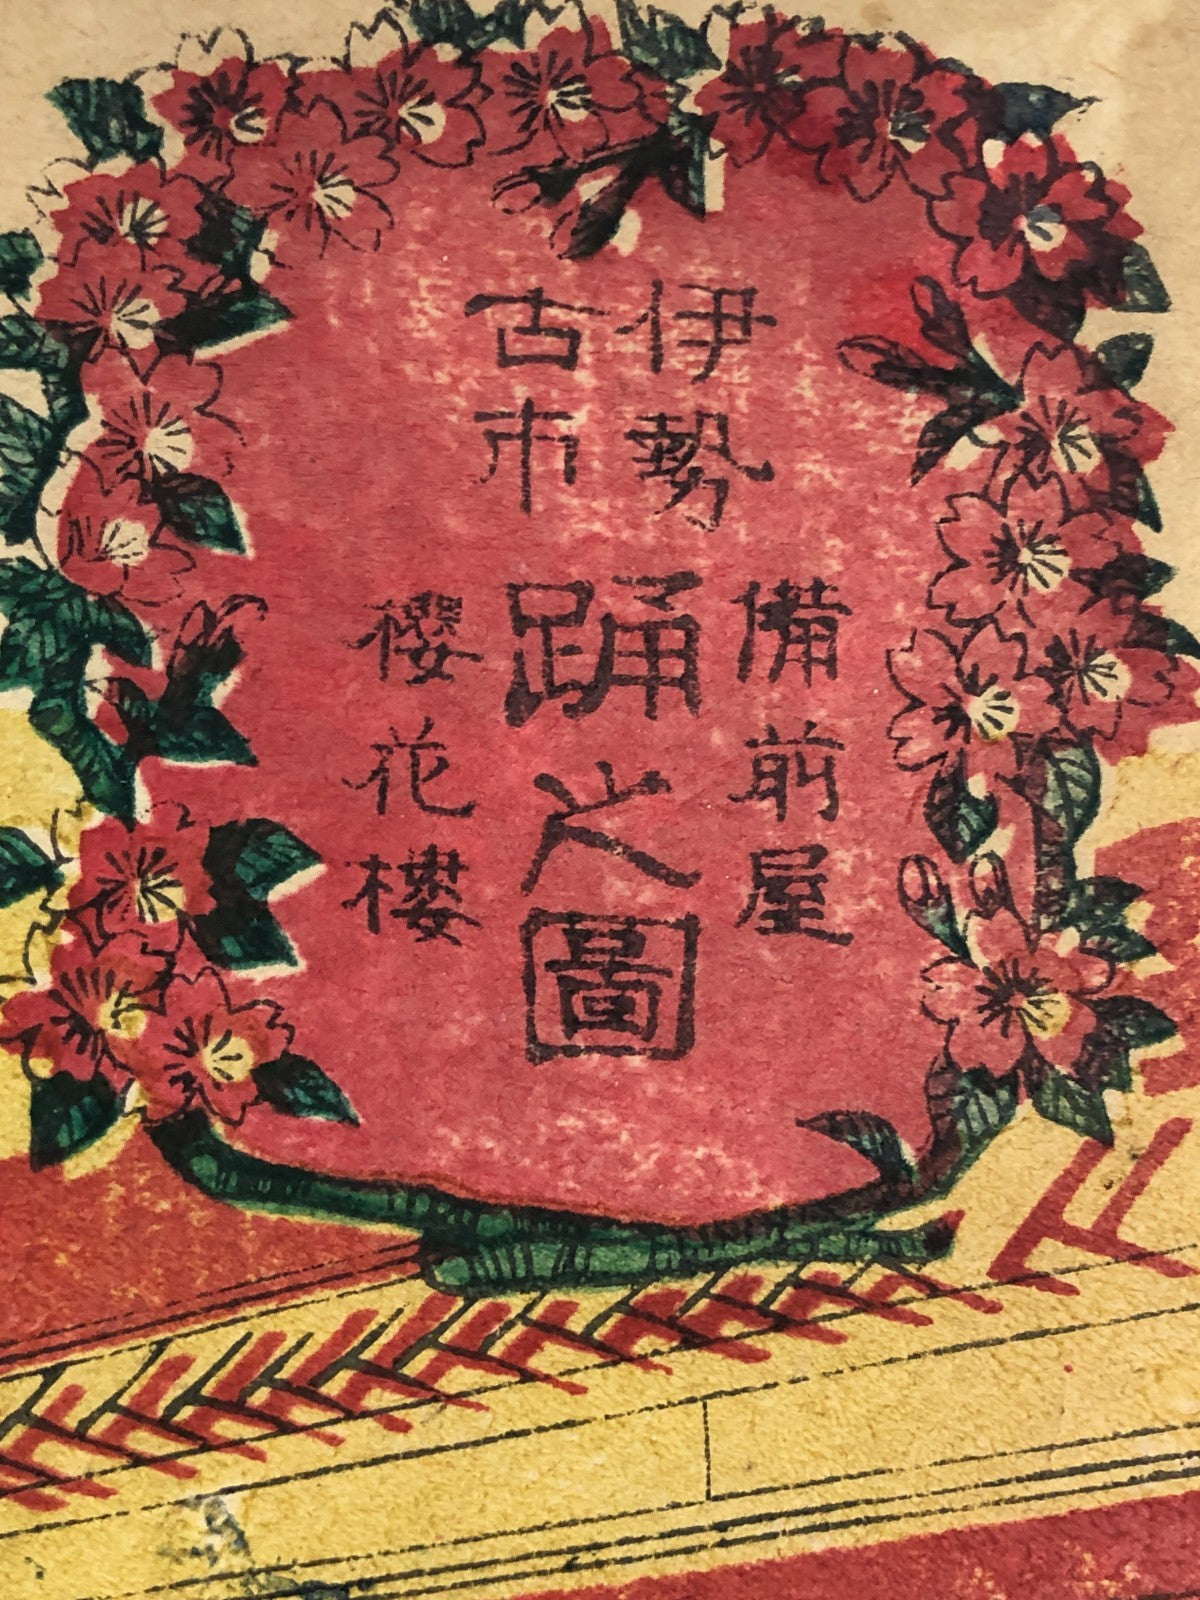 伊勢
古市
備前屋
踊之圖
櫻花樓